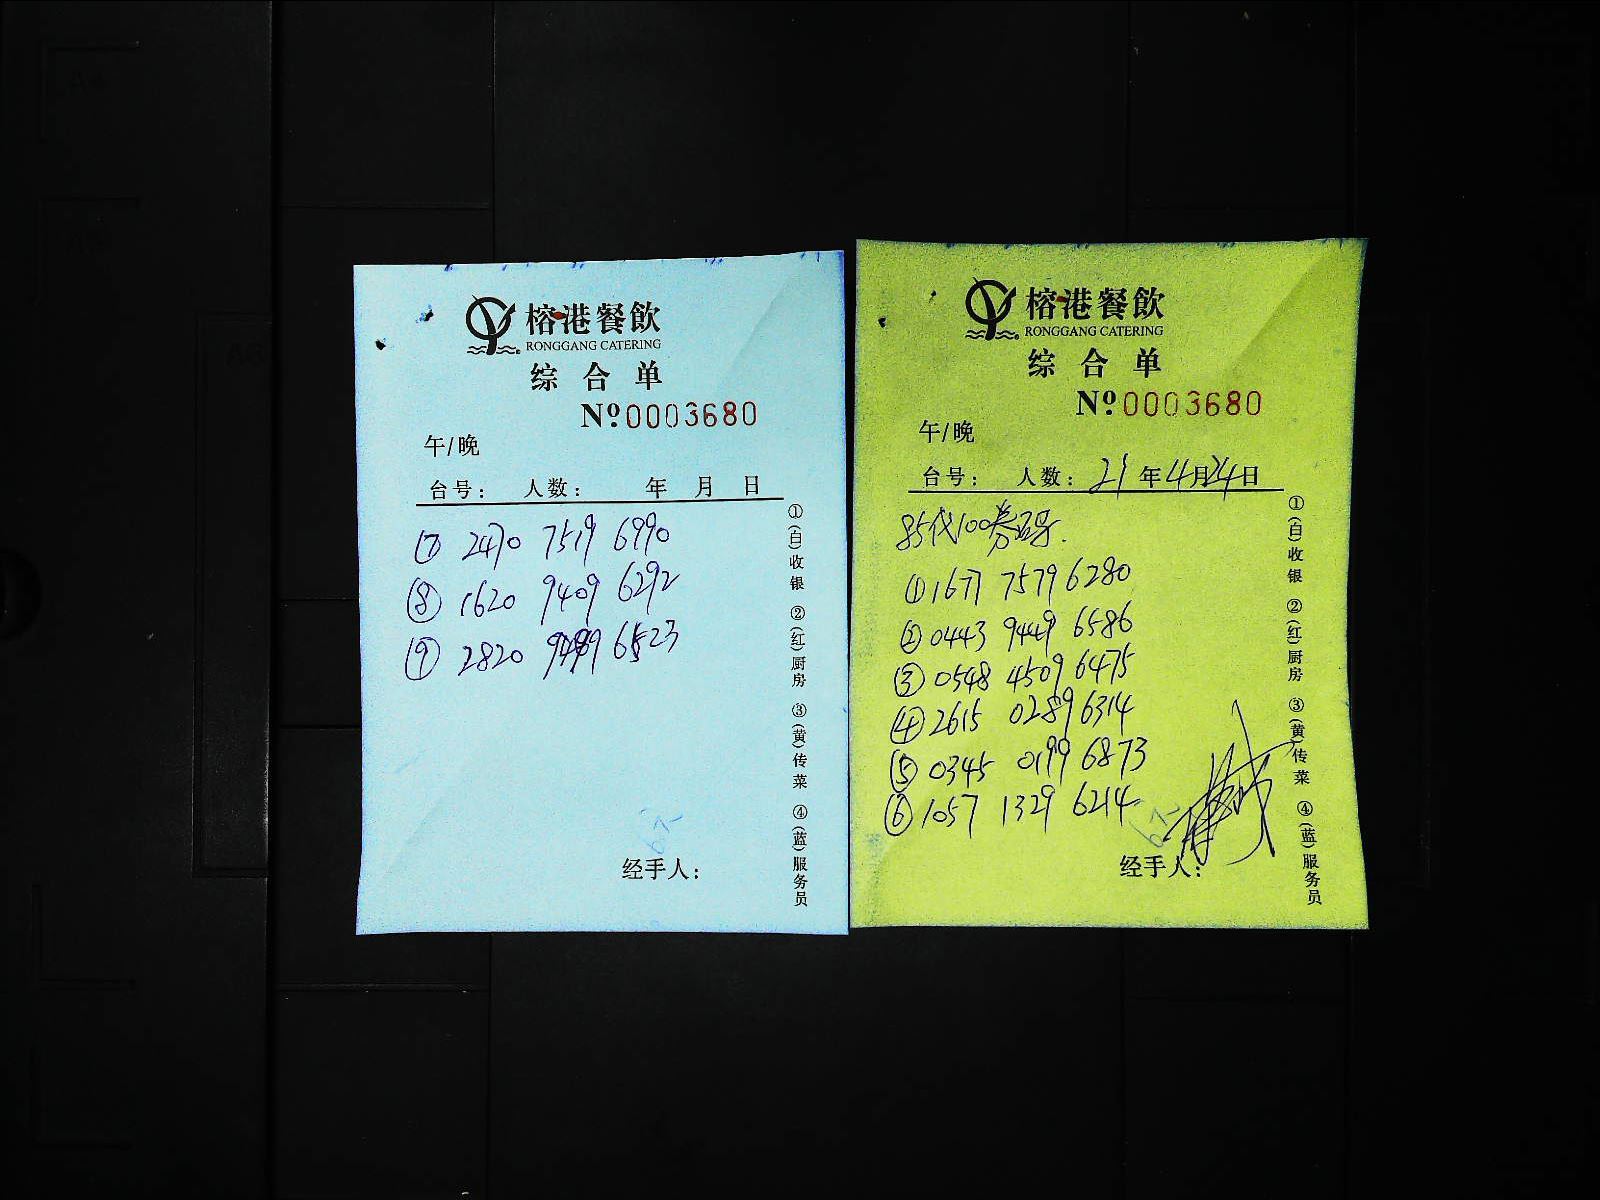 榕港餐飲
RONGGANG CATERING
综合单
Nº0003680
午/晚
台号： 人数： 年 月 日
⑦ 2470 7519 6990
⑧ 1620 9409 6292
⑨ 2820 9499 6523
经手人：
①(白)收银 ②(红)厨房 ③(黄)传菜 ④(蓝)服务员
榕港餐飲
RONGGANG CATERING
综合单
Nº0003680
午/晚
台号： 人数： 21年4月24日
85代100券码.
①1677 7579 6280
②0443 9449 6586
③0548 4509 6475
④2615 0289 6314
⑤0345 0199 6873
⑥1057 1329 6214
经手人：
①(白)收银 ②(红)厨房 ③(黄)传菜 ④(蓝)服务员